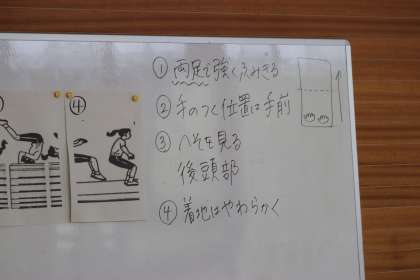 ① 両足で強くふみきる
② 手のつく位置は手前
③ へそを見る
後頭部
④ 着地はやわらかく
④